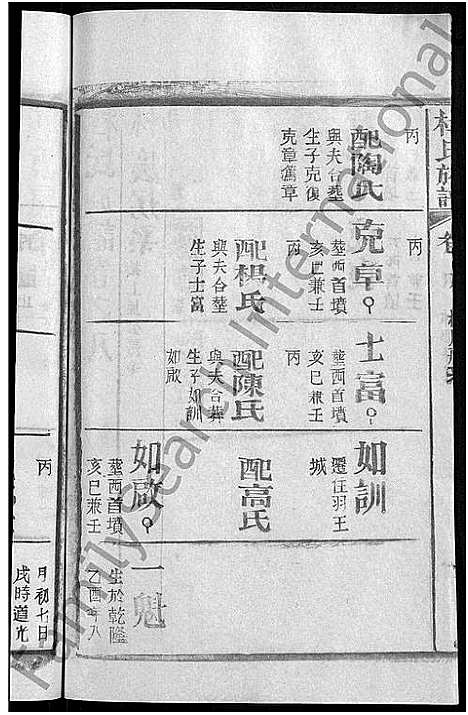 氏族譜
丙
配陶氏
與夫合塟
生子克復
克章萬章
丙
克章
塟西首墳
亥巳兼壬
丙
配楊氏
與夫合塟
生子士富
士富
塟西首墳
亥巳兼壬
丙
配陳氏
與夫合葬
生子如訓
如啟
如訓
遷住羽王
城
配高氏
如啟
塟西首墳
亥巳兼壬
丙
一魁
生於乾隆
乙酉年八
月初七日
戌時道光
FamilySearch International